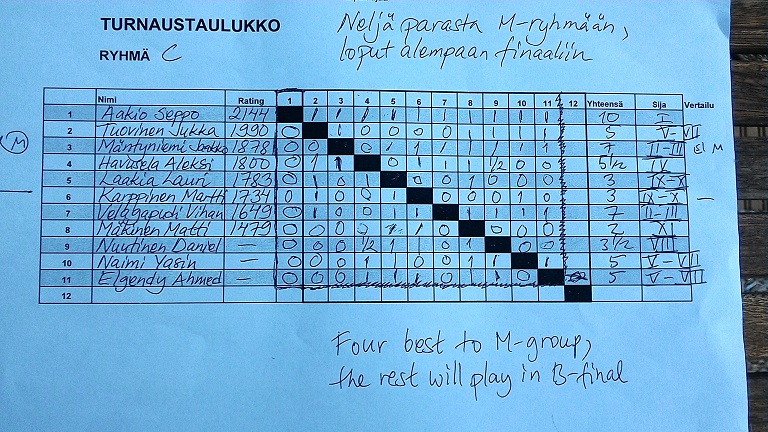 TURNAUSTAULUKKO
RYHMÄ C
Neljä parasta M-ryhmään,
loput alempaan finaaliin
Nimi Rating 1 2 3 4 5 6 7 8 9 10 11 12 Yhteensä Sija Vertailu
1 Aakio Seppo 2144 1 1 1 1 1 1 1 1 1 1 10 I
2 Tuovinen Jukka 1990 0 1 0 0 0 0 1 1 1 1 5 V-VII
M
3 Mäntyniemi Jaakko 1878 0 0 0 1 1 1 1 1 1 1 7 II-III ei M
4 Havusela Aleksi 1800 0 1 1 1 1 0 1 1/2 0 0 5 1/2 IV
5 Laakia Lauri 1783 0 1 0 0 0 1 0 0 3 IX-X
6 Karppinen Martti 1734 0 1 0 0 0 0 0 1 0 3 IX-X —
7 Vihan 1649 0 1 0 1 0 1 1 1 7 II-III
8 Mäkinen Matti 1479 0 0 0 0 0 1 0 0 0 2 XI
9 Nuutinen Daniel — 0 0 0 1/2 1 1 0 1 0 0 3 1/2 VIII
10 Naimi Yasin — 0 0 0 1 1 0 0 1 1 5 V-VII
11 Elgendy Ahmed — 0 0 0 1 1 1 0 1 1 5 V-VII
12
Four best to M-group,
the rest will play in B-final